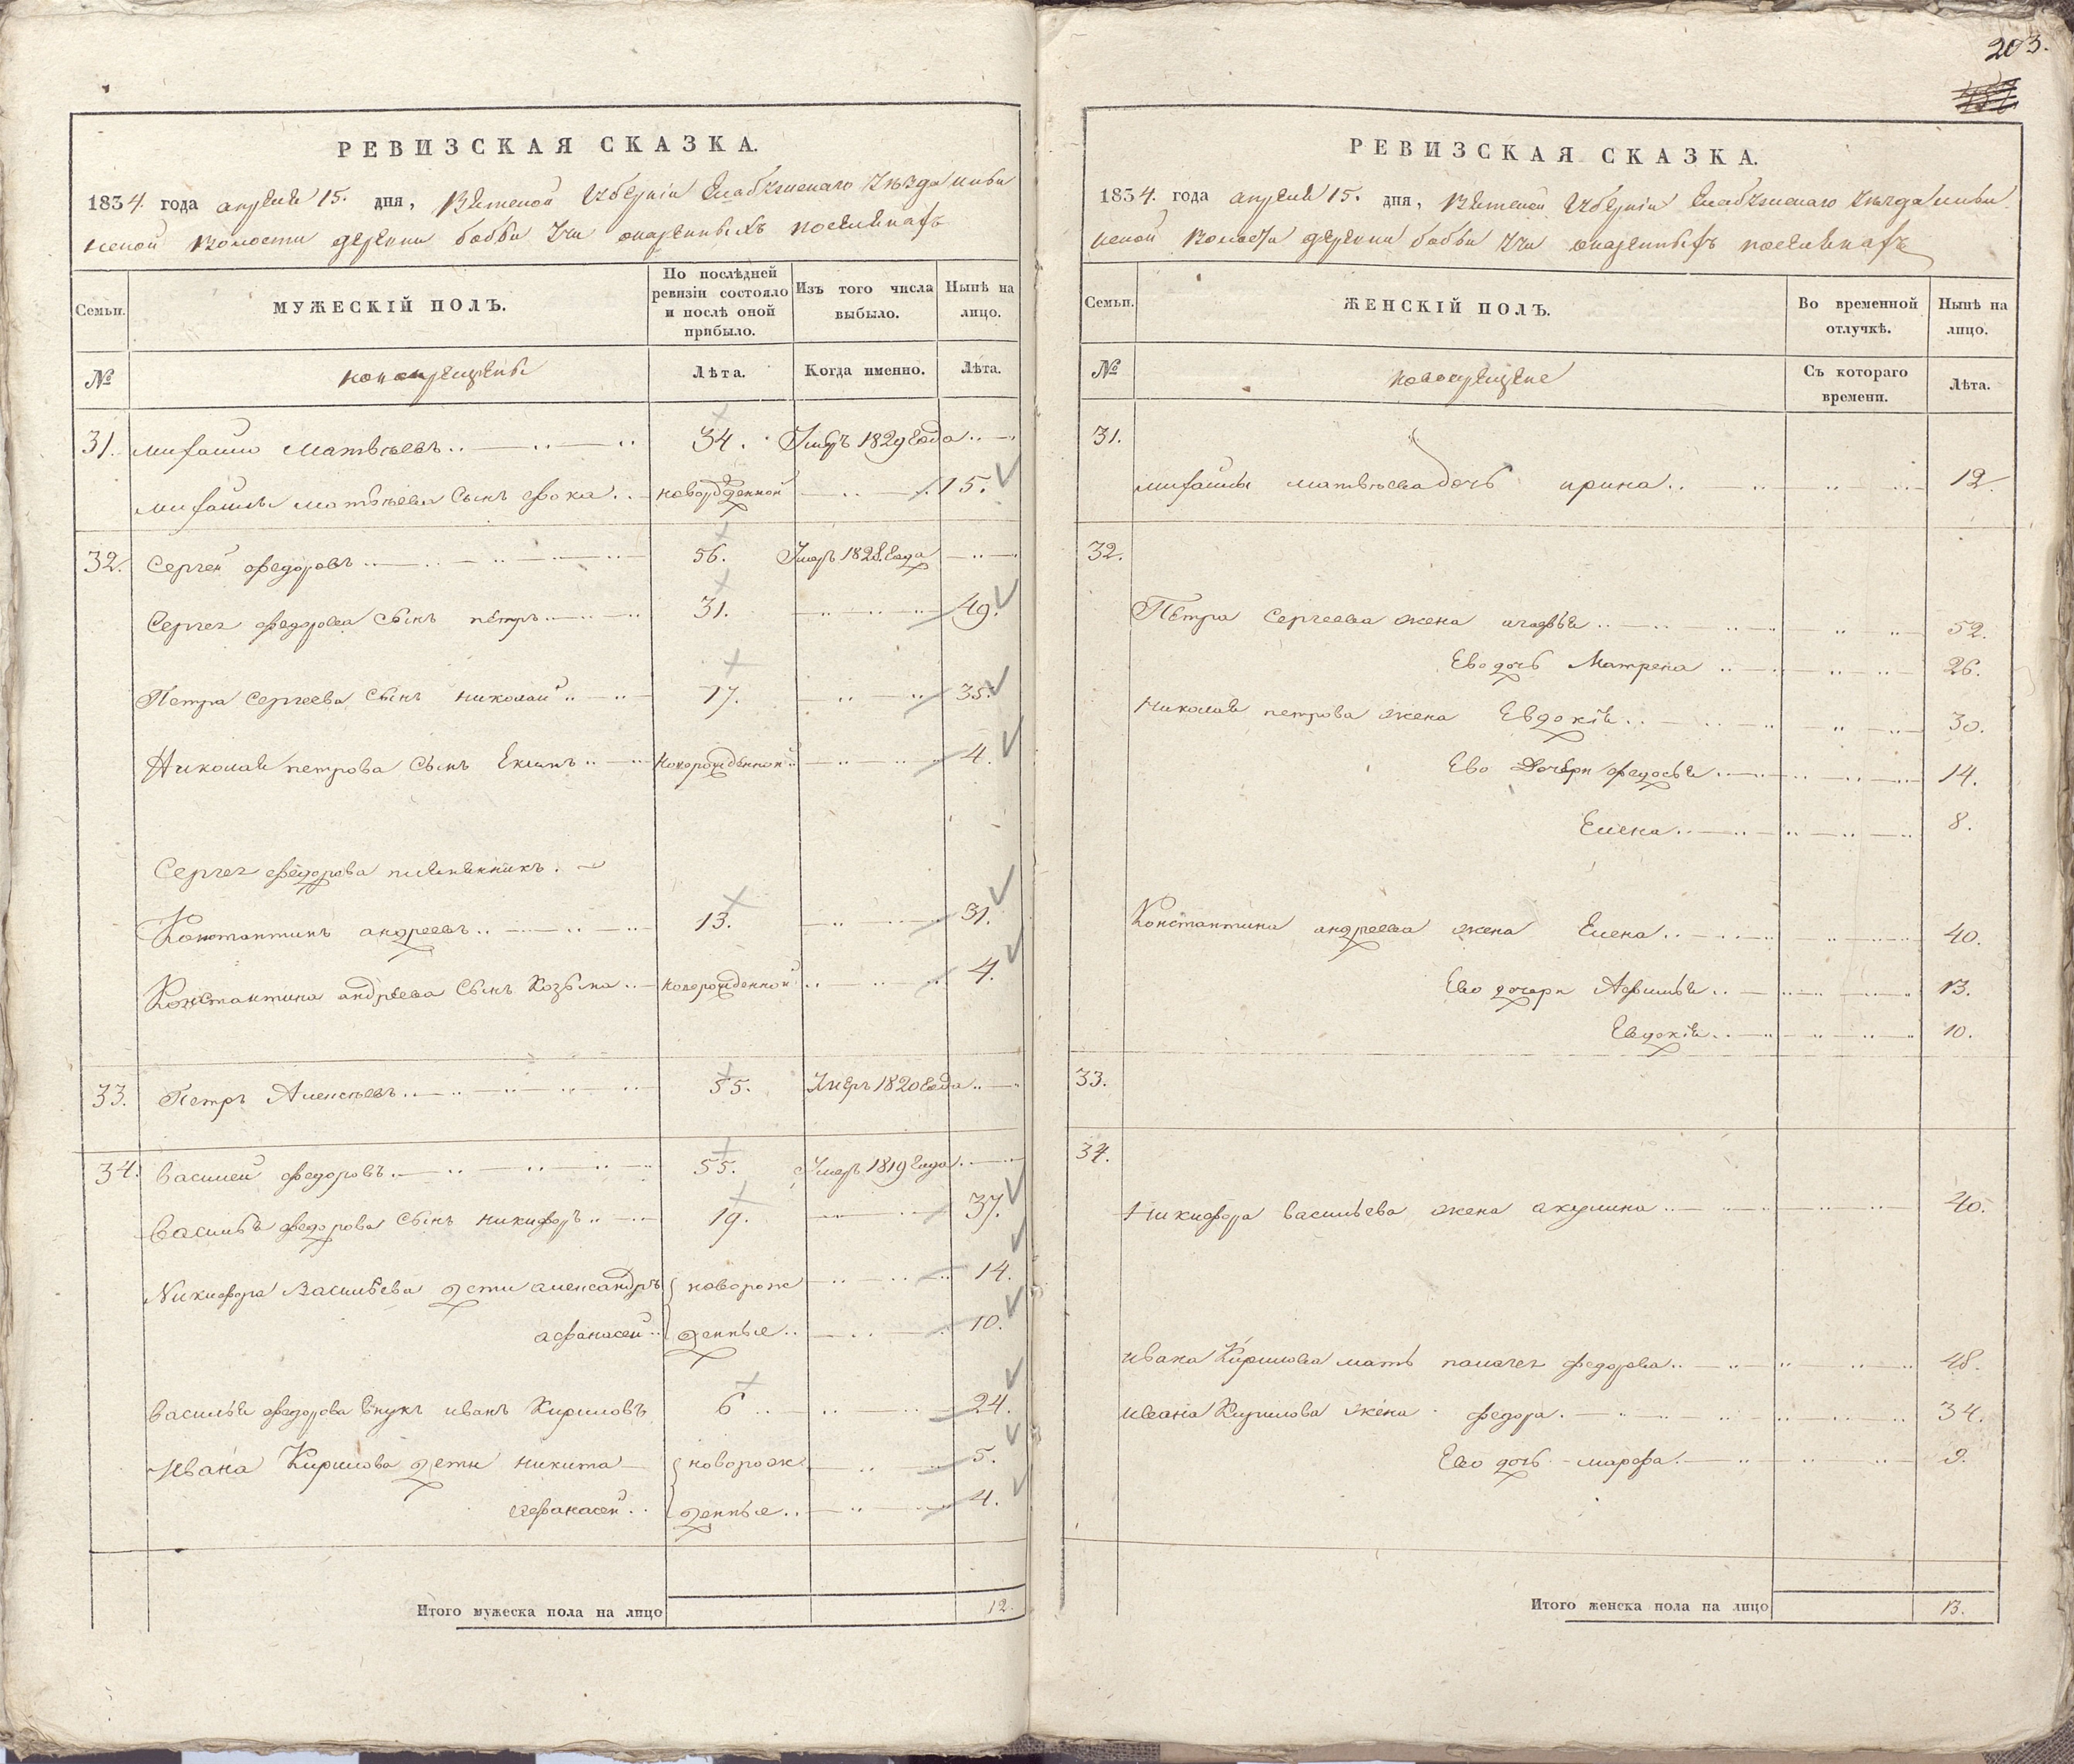 РЕВИЗСКАЯ СКАЗКА.
1834. года апреля 15. дня, Вятской губернии Елабужскаго уезда ильи
нской волости деревни бобьи учи
Семьи.
МУЖЕСКІЙ ПОЛЪ.
По послѣдней ревизіи состояло и послѣ оной прибыло.
Изъ того числа выбыло.
Нынѣ на лицо.
№
новокрещены
Лѣта.
Когда именно.
Лѣта.
31. михайло Матвѣевъ 34. Умеръ 1829 года
михайлы матвѣева сынъ фока новорожденной 15.
32. Сергей федоровъ 56. Умеръ 1828 года
Сергея федорова сынъ петръ 31. 49.
Петра Сергеева сынъ николай 17. 35.
Николая петрова сынъ новорожденной 4.
Сергея федорова племянникъ
Константинъ андреевъ 13. 31.
Константина андреева сынъ Козьма новорожденной 4.
33. Петръ Алексѣевъ 55. Умеръ 1820 года
34. Василей федоровъ 55. Умеръ 1819 года
Василья федорова сынъ никифоръ 19. 37.
Никифора Васильева дети александръ новорож 14.
афанасей денные 10.
Василья федорова внукъ иванъ Кириловъ 6 24.
Ивана Кирилова дети никита новорож 5.
афанасей денные 4.
Итого мужеска пола на лицо 12.
203.
РЕВИЗСКАЯ СКАЗКА.
1834. года апреля 15. дня, Вятской губерніи Елабужскаго уезда ильи
нской волости деревни бобьи учи
Семьи.
ЖЕНСКІЙ ПОЛЪ.
Во временной отлучкѣ.
Нынѣ на лицо.
№
новокрещене
Съ котораго времени.
Лѣта.
31.
михайлы матвѣева дочь ирина 12.
32.
Петра Сергеева жена агафья 52.
Ево дочь Матрена 26.
николая петрова жена Евдокія 30.
Ево Дочери федосья 14.
Елена 8.
Константина андреева жена Елена 40.
Ево дочери 13.
Евдокія 10.
33.
34.
Никифора васильева жена акулина 40.
ивана Кирилова мать федорова 48.
ивана Кирилова жена федора 34.
Ево дочь марфа 9.
Итого женска пола на лицо 13.